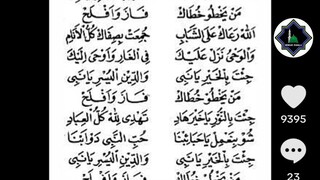 مَنْ يَخْطُو خُطَاكْ فَازَ وَأَفْلَحْ
اللهُ رَعَاكَ عَلَى الشَّبَابِ جُمِعَتْ بِصِفَاكَ كُلُّ الْأَنَامِ
وَالْوَحْيُ نَزَلْ عَلَيْكَ فِي الْغَارِ وَأَوْحَى إِلَيْكَ
جِئْتَ بِالْخَيْرِ يَانَبِي فِي الدِّينِ الْيُسْرِ يَانَبِي
مَنْ يَخْطُو خُطَاكْ فَازَ وَأَفْلَحْ
جِئْتَ بِالنُّورِ يَاخَيْرَ هَادِ تَهْدِي لِلهِ كُلَّ الْعِبَادِ
شُو بِنَعْمِلْ يَاحَبَايِبْنَا حُبِّ النَّبِي دَوَابْنَا
جِئْتَ بِالْخَيْرِ يَانَبِي وَالدِّينِ الْيُسْرِ يَانَبِي
مَنْ يَخْطُو خُطَاكْ فَازَ وَأَفْلَحْ
9395
23